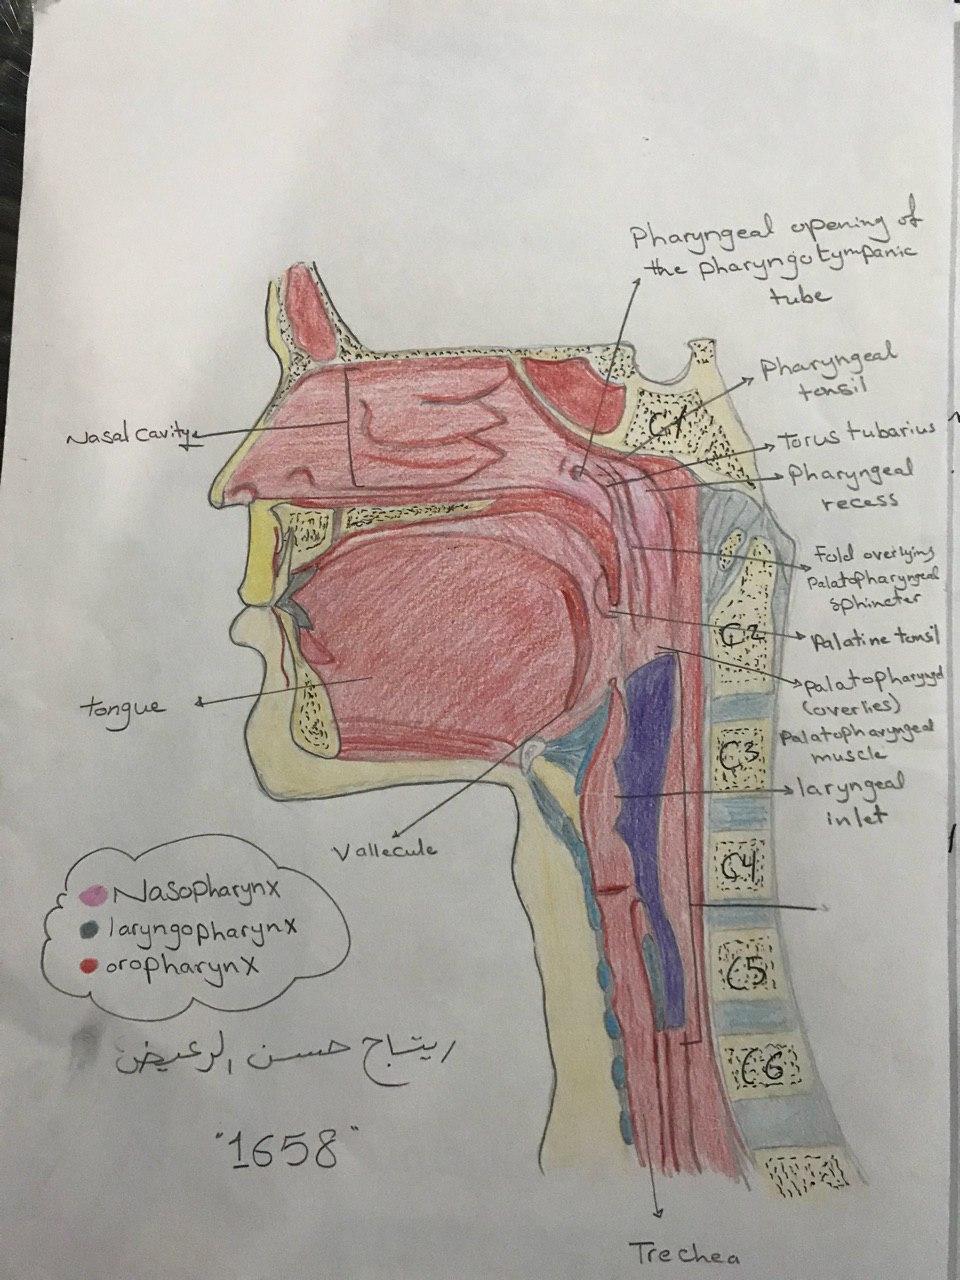 Pharyngeal opening of
the pharyngotympanic
tube
Pharyngeal
tonsil
Nasal cavity
Torus tubarius
Pharyngeal
recess
Fold overlying
Palatopharyngeal
sphincter
Palatine tonsil
tongue
(overlies)
Palatopharyngeal
muscle
laryngeal
inlet
Vallecule
C1
C2
C3
C4
C5
C6
Nasopharynx
laryngopharynx
oropharynx
ريتاج حسن الرعيض
"1658"
Trechea